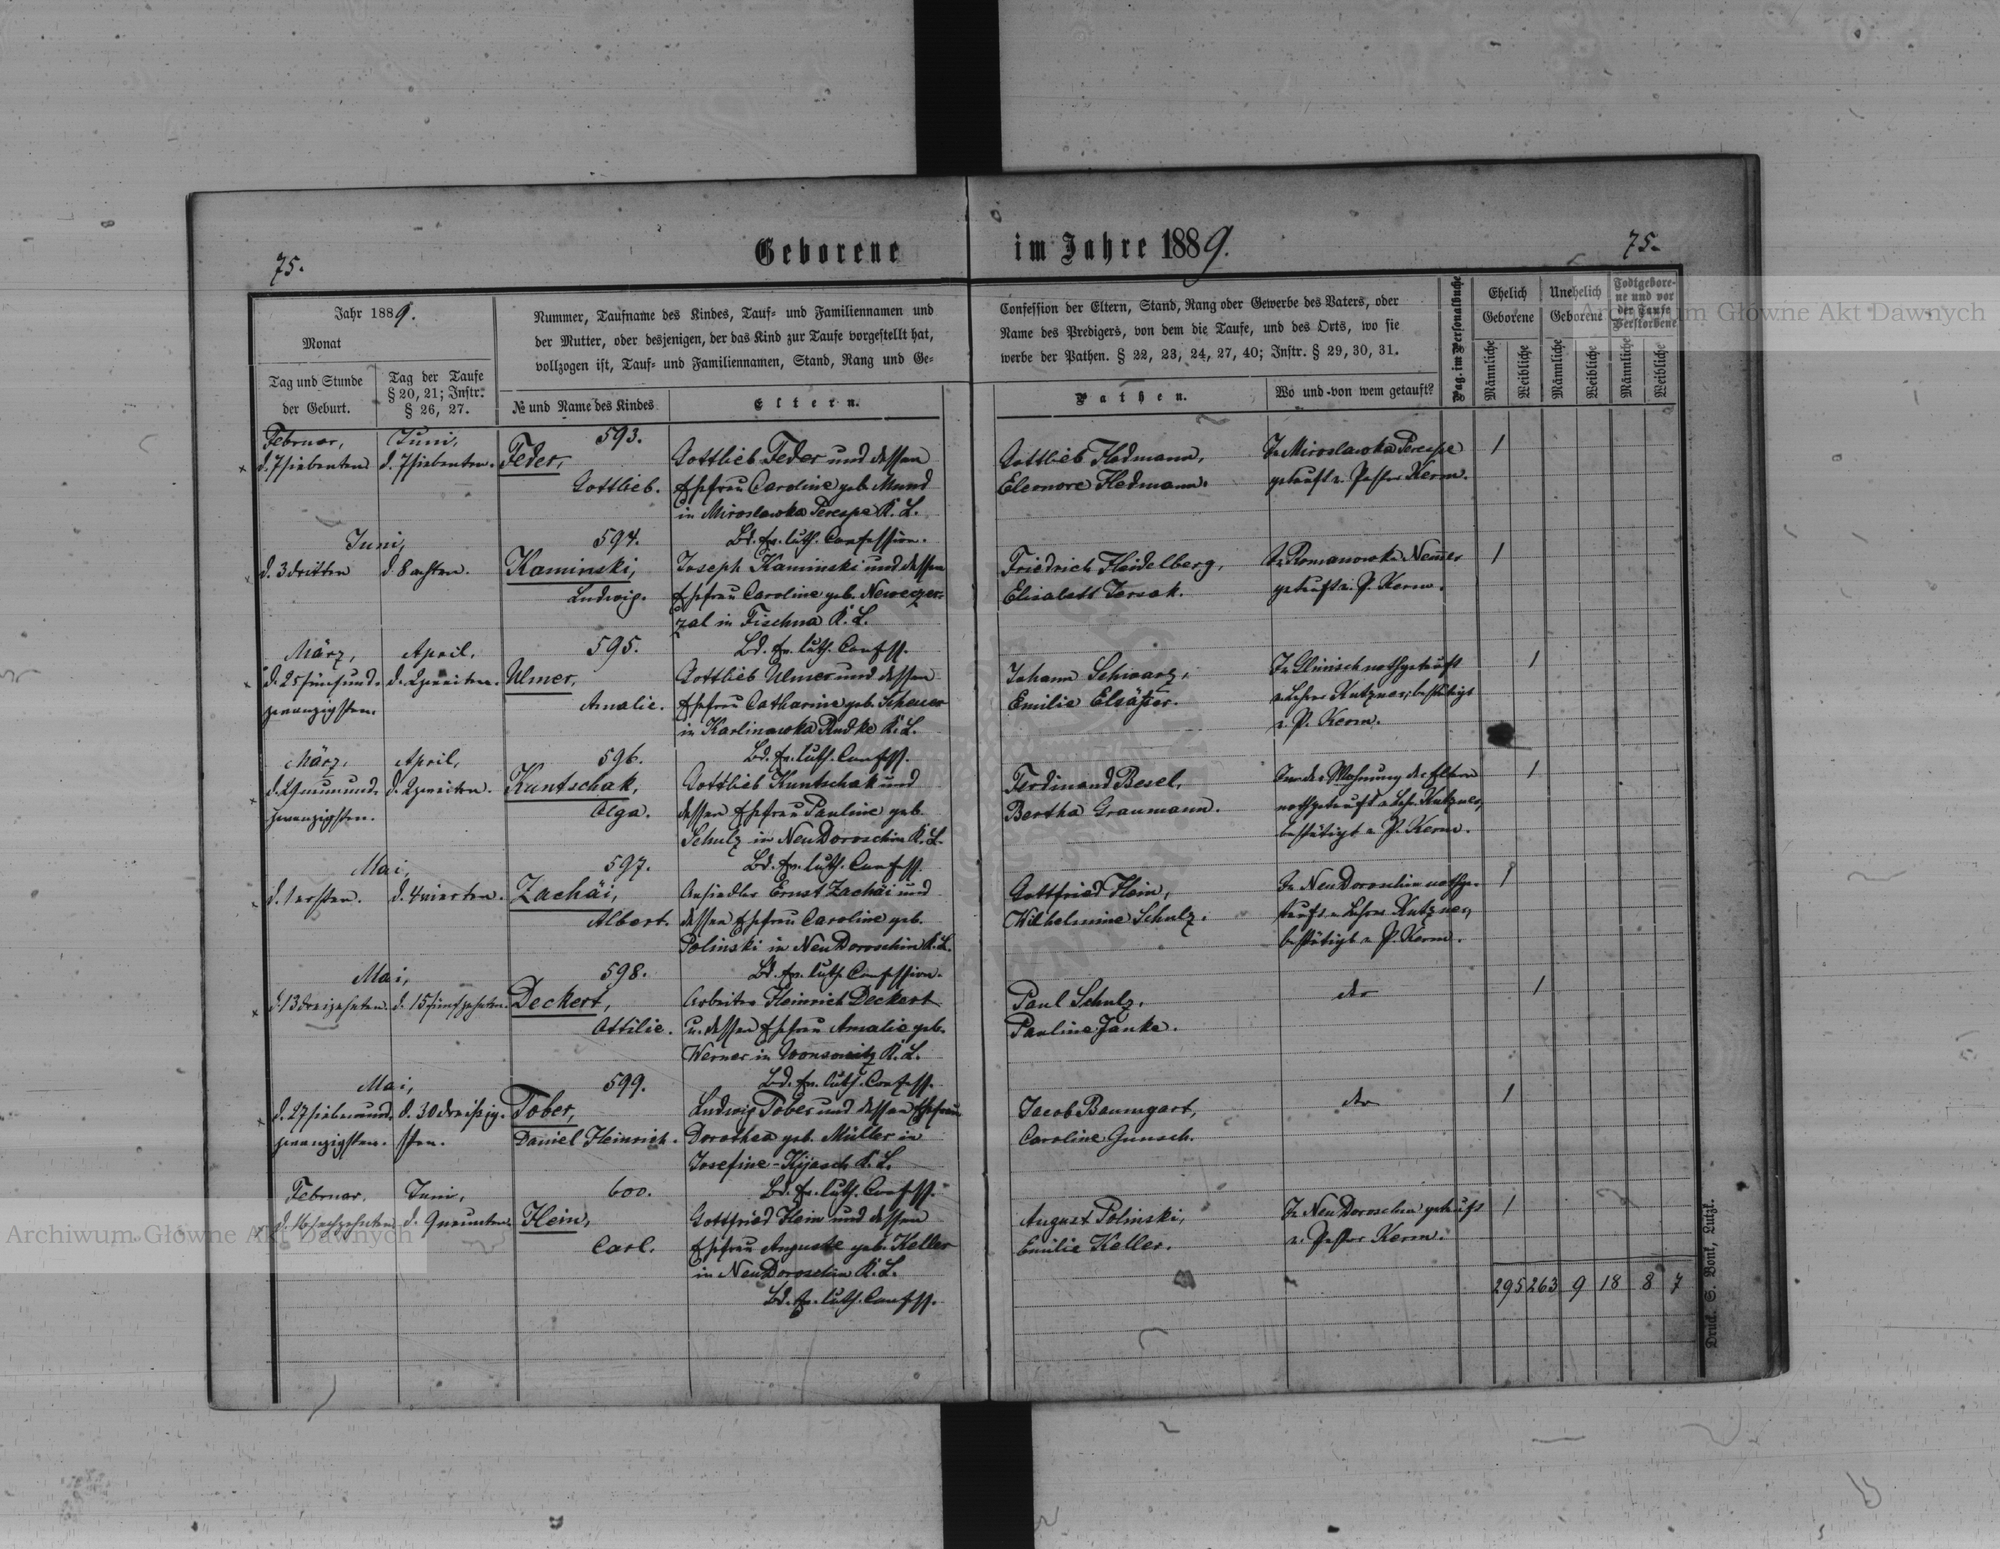 75.
Geborene
im Jahre 1889.
75.
Jahr 1889.
Monat
Tag und Stunde
der Geburt.
Tag der Taufe
§ 20, 21; Instr.
§ 26, 27.
Nummer, Taufname des Kindes, Tauf- und Familiennamen und
der Mutter, oder desjenigen, der das Kind zur Taufe vorgestellt hat,
vollzogen ist, Tauf- und Familiennamen, Stand, Rang und Ge-
№ und Name des Kindes
Eltern.
Confession der Eltern, Stand, Rang oder Gewerbe des Vaters, oder
Name des Predigers, von dem die Taufe, und des Orts, wo sie
werbe der Pathen. § 22, 23, 24, 27, 40; Instr. § 29, 30, 31.
Pathen.
Wo und von wem getauft?
Pag. im Personalbuche
Ehelich
Geborene
Unehelich
Geborene
Todtgebore-
ne und vor
der Taufe
Verstorbene
Männliche
Weibliche
Männliche
Weibliche
Männliche
Weibliche
Februar,
Juni,
593.
d. 7 siebenten
d. 7 siebenten.
Feder,
Gottlieb.
Gottlieb Feder und dessen
Ehefrau Caroline geb. Mund
in Miroslawka Perespe K. L.
Bd. ev. luth. Confession.
Gottlieb Hedmann,
Eleonore Hedmann.
In Miroslawka Perespe
getauft v. Pastor Kerm.
1
Juni,
594.
d. 3 dritten
d. 8 achten.
Kaminski,
Ludwig.
Joseph Kaminski und dessen
Ehefrau Caroline geb. Neweczer-
zal in Tischna K. L.
Bd. ev. luth. Confess.
Friedrich Heidelberg,
Elisabeth
getauft v. P. Kerm.
1
März,
April,
595.
d. 25 fünfund-
zwanzigsten.
d. 2 zweiten.
Ulmer,
Amalie.
Gottlieb Ulmer und dessen
Ehefrau Catharine geb. Scheuer
in Karlinawka Rudke K. L.
Bd. ev. luth. Confess.
Johann Schwarz,
Emilie Elsäßer.
In Glinisch nothgetauft
v. Lehrer Kutzner, bestätigt
v. P. Kerm.
1
März,
April,
596.
d. 29 neunund-
zwanzigsten.
d. 2 zweiten.
Kuntschak,
Olga.
Gottlieb Kuntschak und
dessen Ehefrau Pauline geb.
Schulz in Neu Doroschin K. L.
Bd. ev. luth. Confess.
Ferdinand Besel,
Bertha Graumann.
In der Wohnung der Eltern
nothgetauft v. Lehr. Kutzner,
bestätigt v. P. Kerm.
1
Mai,
597.
d. 1 ersten.
d. 4 vierten.
Zachäi,
Albert.
Ansiedler Ernst Zachäi und
dessen Ehefrau Caroline geb.
Polinski in Neu Doroschin K. L.
Bd. ev. luth. Confession.
Gottfried Hein,
Wilhelmine Schulz.
In Neu Doroschin nothge-
tauft v. Lehrer Kutzner,
bestätigt v. P. Kerm.
1
Mai,
598.
d. 13 dreizehnten.
d. 15 fünfzehnten.
Deckert,
Ottilie.
Arbeiter Heinrich Deckert
u. dessen Ehefrau Amalie geb.
Werner in Wonsowitz K. L.
Bd. ev. luth. Confess.
Paul Schulz,
Pauline Janke.
1
Mai,
599.
d. 27 siebenund-
zwanzigsten.
d. 30 dreißig-
sten.
Tober,
Daniel Heinrich.
Ludwig Tober und dessen Ehefrau
Dorothea geb. Müller in
Josefine-Kijasch K. L.
Bd. ev. luth. Confess.
Jacob Baumgart,
Caroline Gunsch.
1
Februar,
Juni,
600.
d. 16 sechzehnten
d. 9 neunten.
Hein,
Carl.
Gottfried Hein und dessen
Ehefrau Auguste geb. Keller
in Neu Doroschin K. L.
Bd. ev. luth. Confess.
August Polinski,
Emilie Keller.
In Neu Doroschin getauft
v. Pastor Kerm.
1
295 263 9 18 8 7
Druck. S. Bonk, Lutzk.
Archiwum Główne Akt Dawnych
Archiwum Główne Akt Dawnych